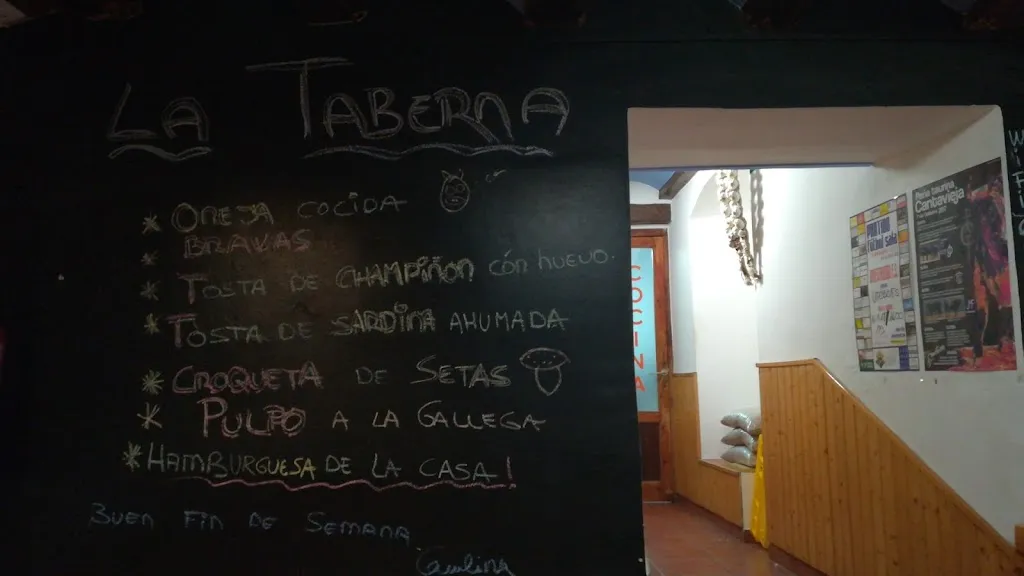 LA TABERNA
OREJA COCIDA
BRAVAS
TOSTA DE CHAMPIÑON CÓN HUEVO.
TOSTA DE SARDINA AHUMADA
CROQUETA DE SETAS
PULPO A LA GALLEGA
HAMBURGUESA DE LA CASA!
BUEN FIN DE SEMANA.
COCINA
PARTIDO
FUTBOL SALA
Cantavieja
WIFI